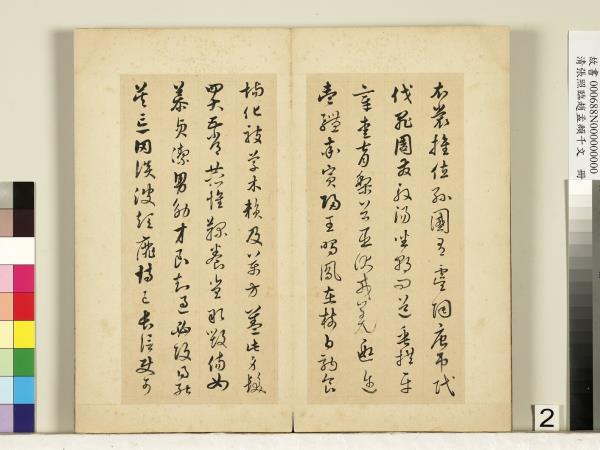 衣裳推位遜國有虞陶唐弔民
伐罪周發殷湯坐朝問道垂拱平
章愛育黎首臣伏戎羌遐邇
壹體率賓歸王鳴鳳在樹白駒食
場化被草木賴及萬方蓋此身髮
四大五常恭惟鞠養豈敢毀傷女
慕貞潔男效才良知過必改得能
莫忘罔談彼短靡恃己長信使可
故書 000688N000000000
清張照臨趙孟頫千文 冊
2